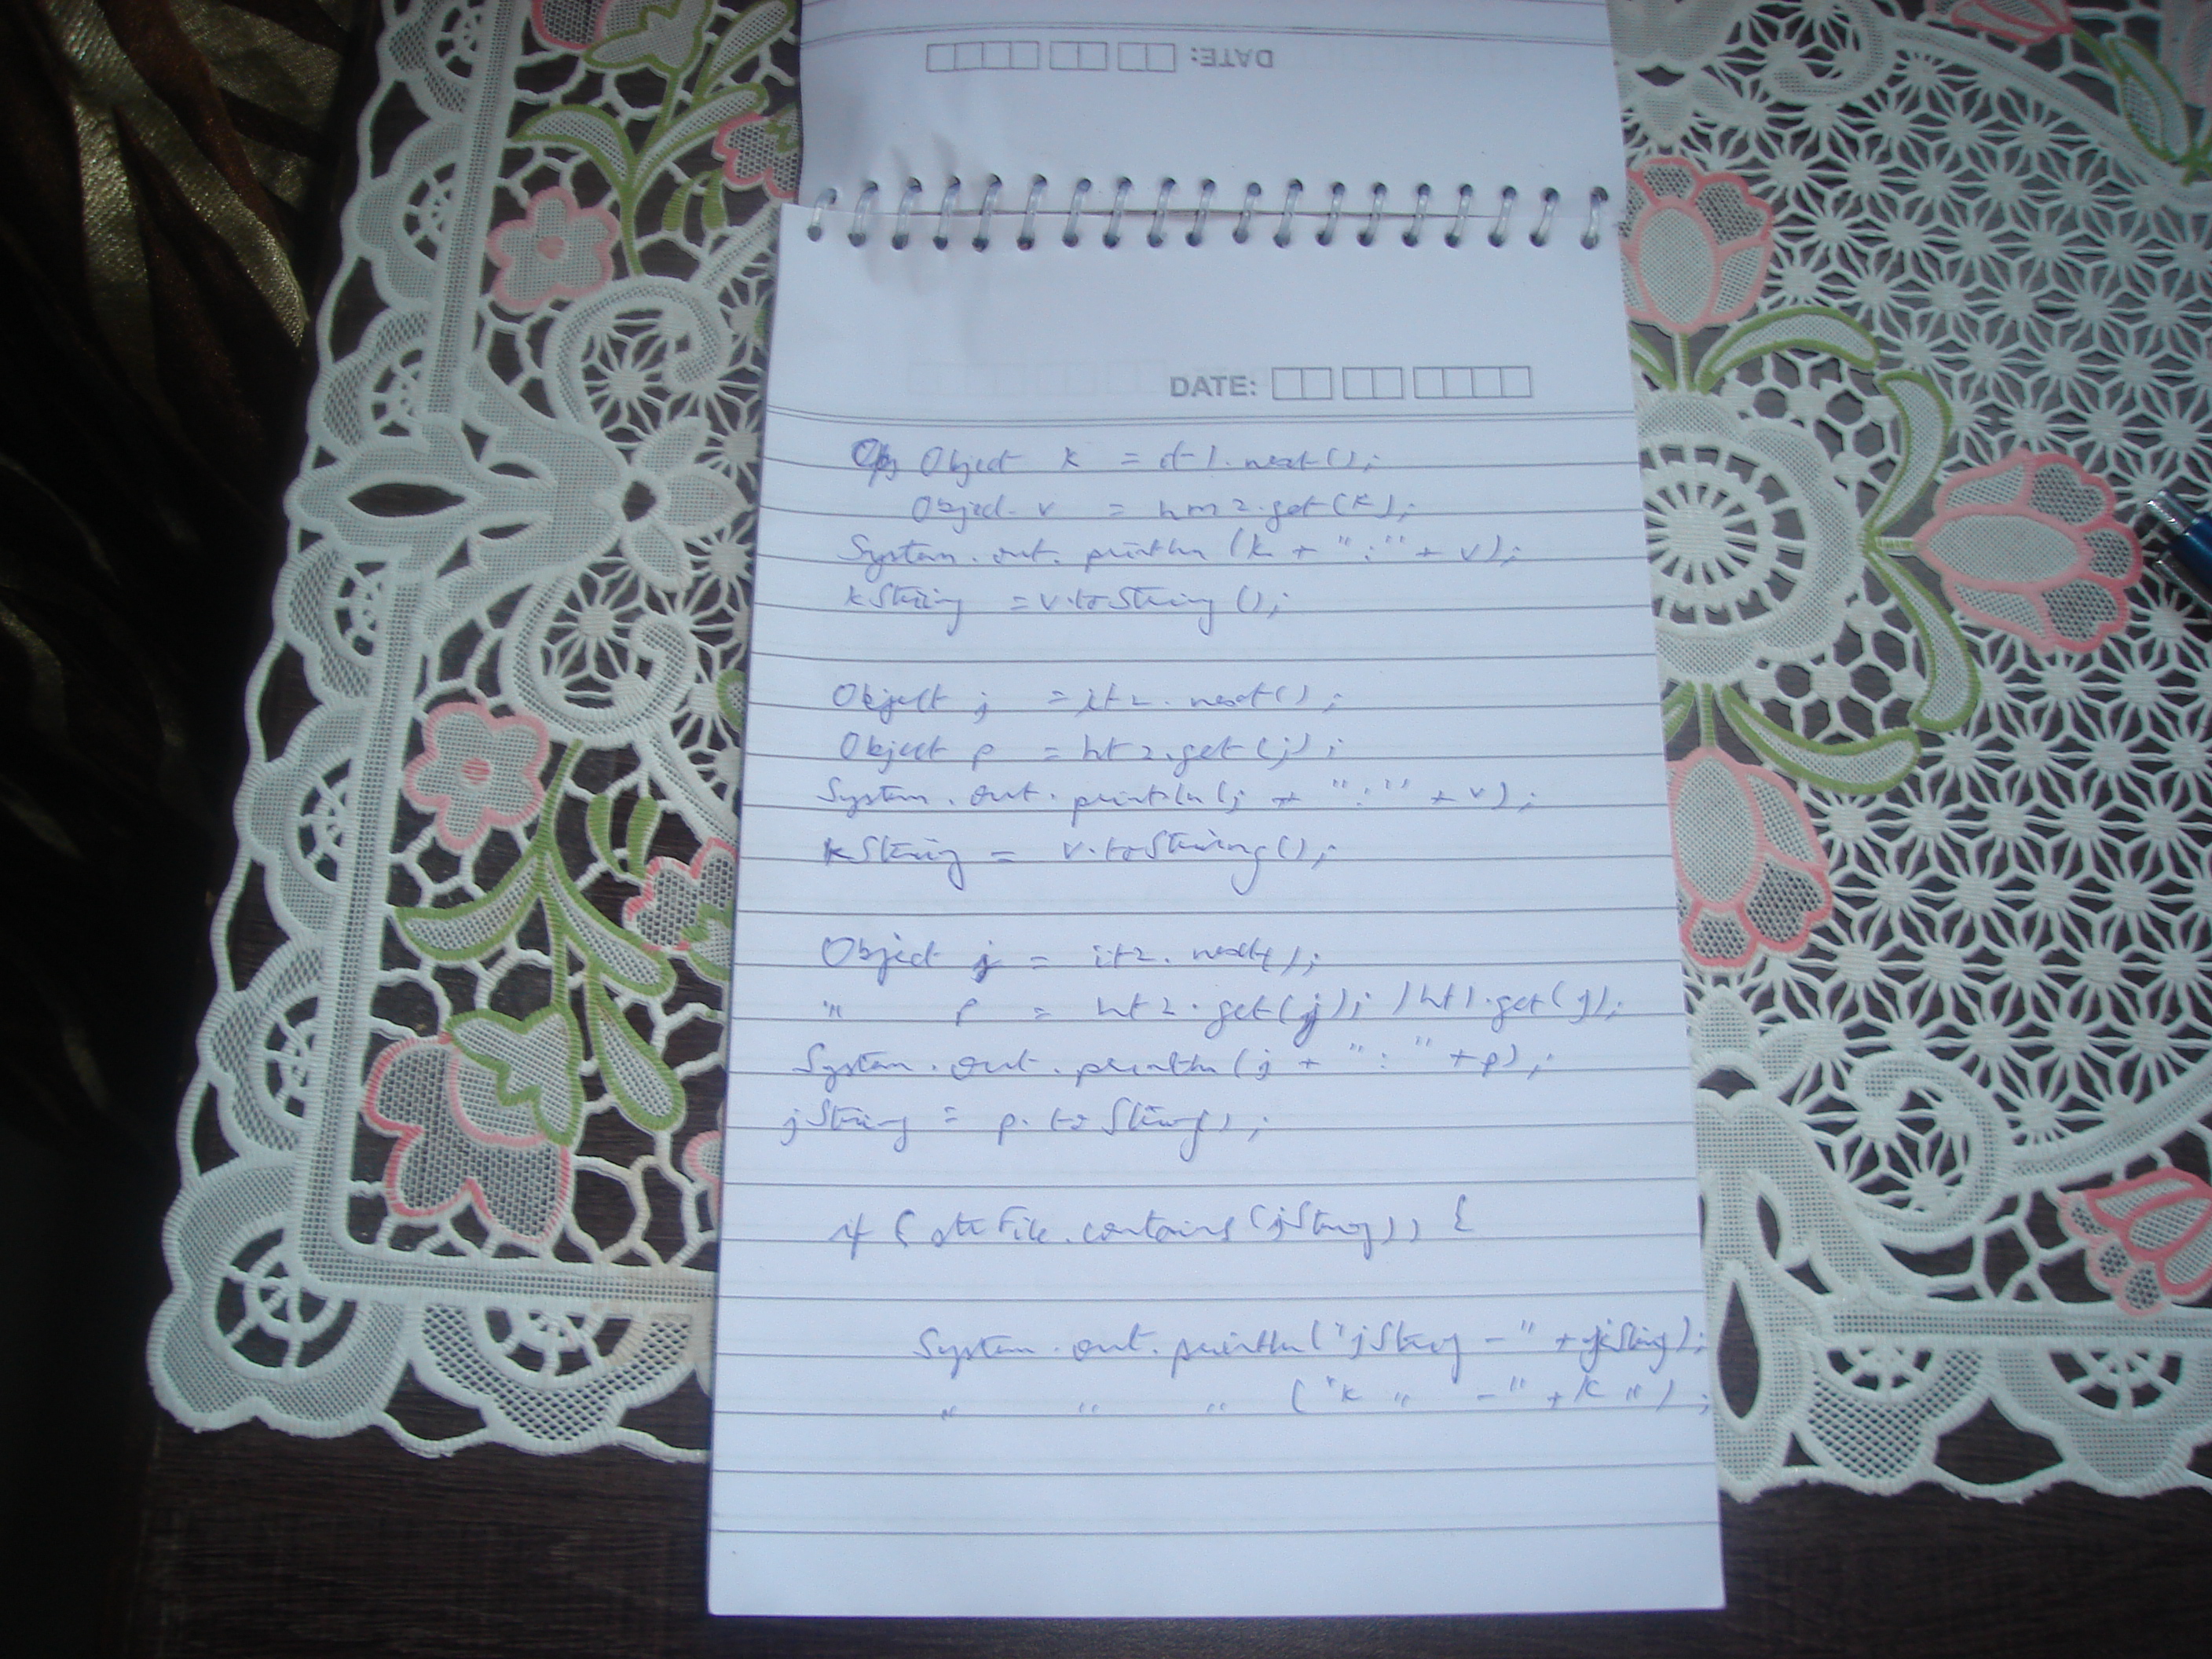 DATE:
DATE:
Obj Object k = it1.next();
Object v = hm2.get(k);
System.out.println(k + ":" + v);
kString = v.toString();
Object j = it2.next();
Object p = ht2.get(j);
System.out.println(j + ":" + v);
kString = v.toString();
Object j = it2.next();
" p = ht2.get(j); / ht1.get(j);
System.out.println(j + ":" + p);
jString = p.toString();
if (strFile.contains(jString)) {
System.out.println("jString -" + jString);
" " " ("k " -" + k ");